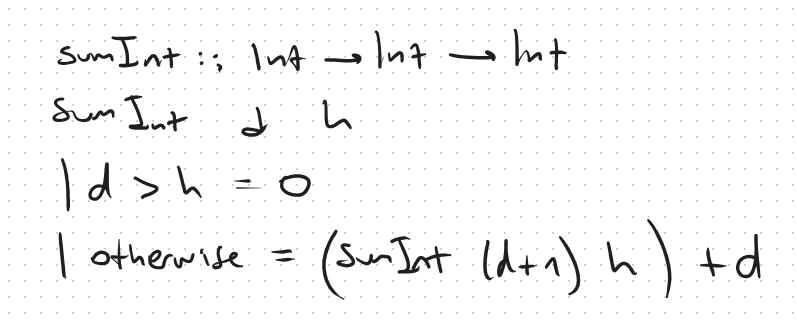 sumInt :: Int → Int → Int
sumInt d h
| d > h = 0
| otherwise = (sumInt (d+1) h) + d